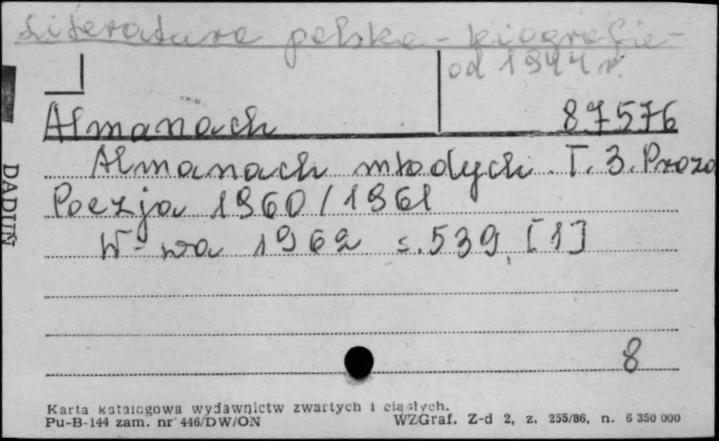 Literatura polska - biografie -
od 1944 r.
Almanach 87576
Almanach młodych. T. 3. Proza
Poezja 1960/1961
W-wa 1962 s. 539, [1]
8
DADUŃ
Karta katalogowa wydawnictw zwartych i ciągłych.
Pu-B-144 zam. nr 446/DW/ON WZGraf. Z-d 2, z. 255/86, n. 6 350 000